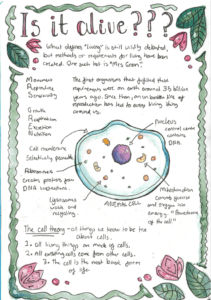 Is it alive???
What defines "living" is still wildly debated,
but methods or requirements for living have been
created. One such list is "Mrs Gren".
Movement
Reproduce
Sensitivity
Growth
Respiration
Excretion
Nutrition
The first organisms that fulfilled these
requirements were on earth around 3.5 billion
years ago. Since then,
reproduction has led to every living thing
around us.
Nucleus
control centre
contains
DNA.
Cell membrane
Selectively permeable
Ribosomes
Creates proteins from
DNA instructions.
Lysosomes
waste and
recycling.
ANIMAL CELL
Mitochondrion
Converts glucose
and oxygen into
energy. "Powerhouse
of the cell"
The cell theory - things we know to be true
about cells.
1. All living things are made of cells.
2. All existing cells come from other cells.
3. The cell is the most basic form
of life.